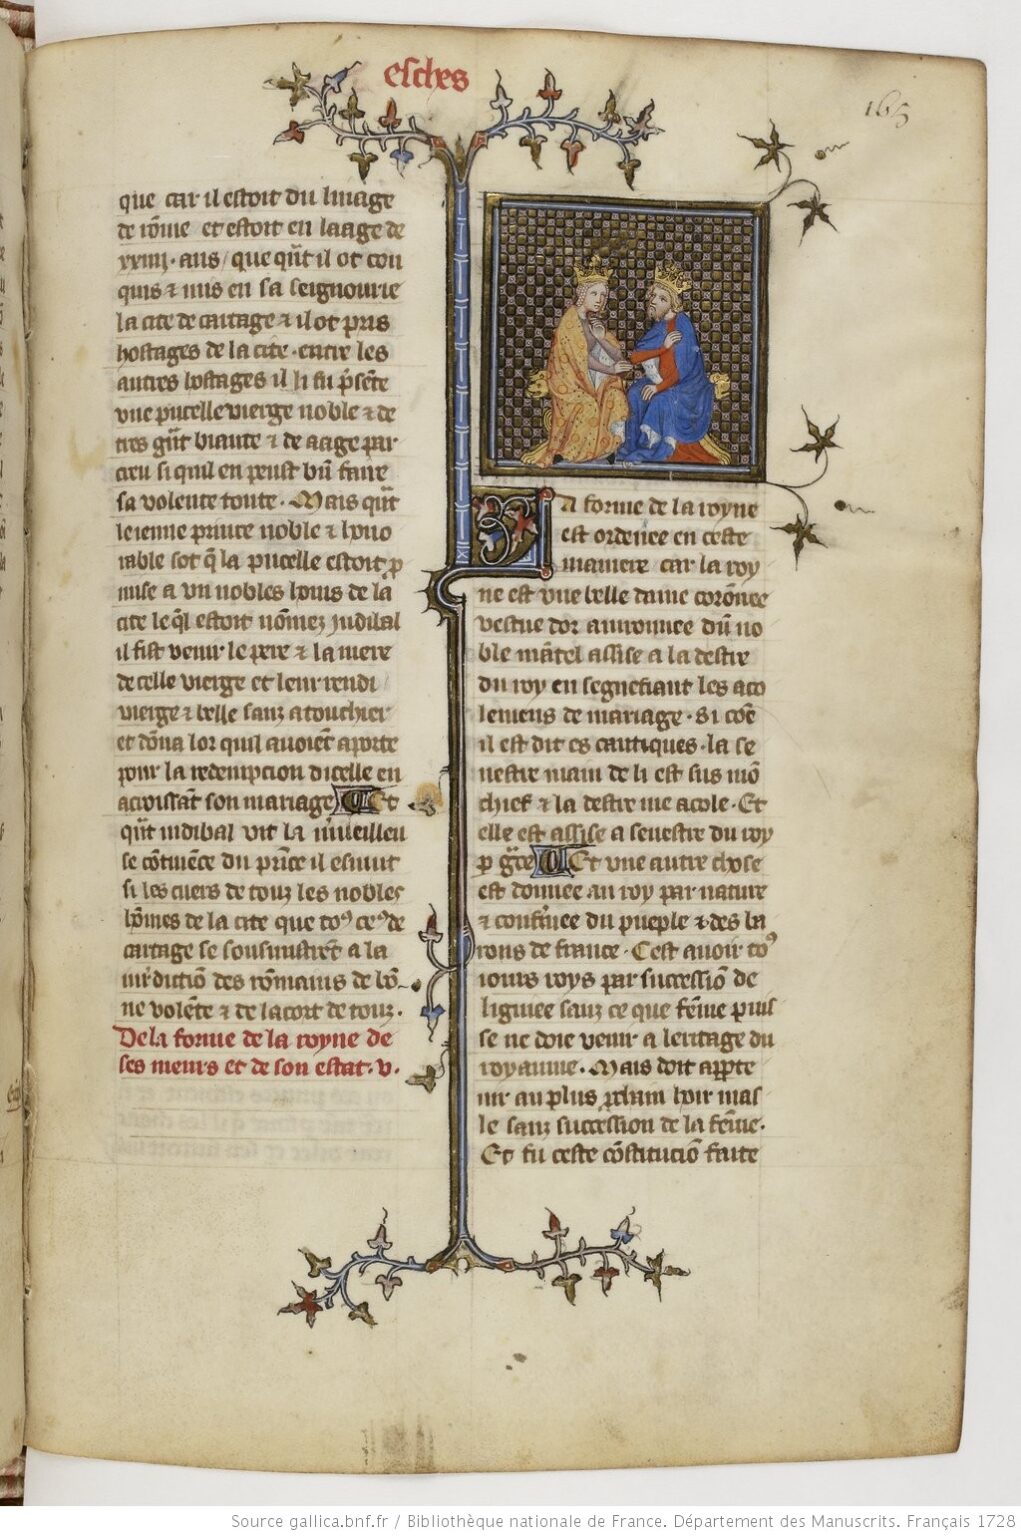 esches
165
que car il estoit du linage
de rõme et estoit en laage de
xxiiij. ans / que qñt il ot con
quis ⁊ mis en sa seignourie
la cite de cartage ⁊ il ot pris
hostages de la cite. entre les
autres hostages il li fu p̃sẽte
vne pucelle vierge noble ⁊ de
tres gñt biaute ⁊ de aage par
creu si quil en peust bñ faire
sa volente toute. Mais qñt
le ienne prince noble ⁊ hono
rable sot q̃ la pucelle estoit p
mise a vn nobles homs de la
cite leq̃l estoit nõmez indibal
il fist venir le pere ⁊ la mere
de celle vierge et leur rendi
vierge ⁊ belle sanz atouchier
et dõna lor quil auoiẽt aporte
pour la redempcion dicelle en
acroissãt son mariage ¶ Et
qñt indibal vit la m̃ueilleu
se cõtinẽce du prĩce il esmut
si les cuers de touz les nobles
hõmes de la cite que toꝰ ceꝰ de
cartage se sousmistrẽt a la
iur̃dictiõ des rõmains de bõ
ne volẽte ⁊ de lacort de touz.
De la forme de la royne de
ses meurs et de son estat. v.
La forme de la royne
est ordenee en ceste
maniere car la roy
ne est vne belle dame corõnee
vestue dor auironnee dũ no
ble mãtel assise a la destre
du roy en segnefiant les aco
lemens de mariage. Si cõe
il est dit es cantiques. la se
nestre main de li est sus mõ
chief ⁊ la destre me acole. Et
elle est assise a senestre du roy
p gr̃ce ¶ Et vne autre chose
est donnee au roy par nature
⁊ confr̃mee du pueple ⁊ des ba
rons de france. Cest auoir toꝰ
iours roys par successiõ de
lignee sanz ce que fẽme puis
se ne doie venir a leritage du
royaume. Mais doit app̃te
nir au plus p̃chain hoir mas
le sanz succession de la fẽme.
Et fu ceste cõstituciõ faite
Source gallica.bnf.fr / Bibliothèque nationale de France. Département des Manuscrits. Français 1728